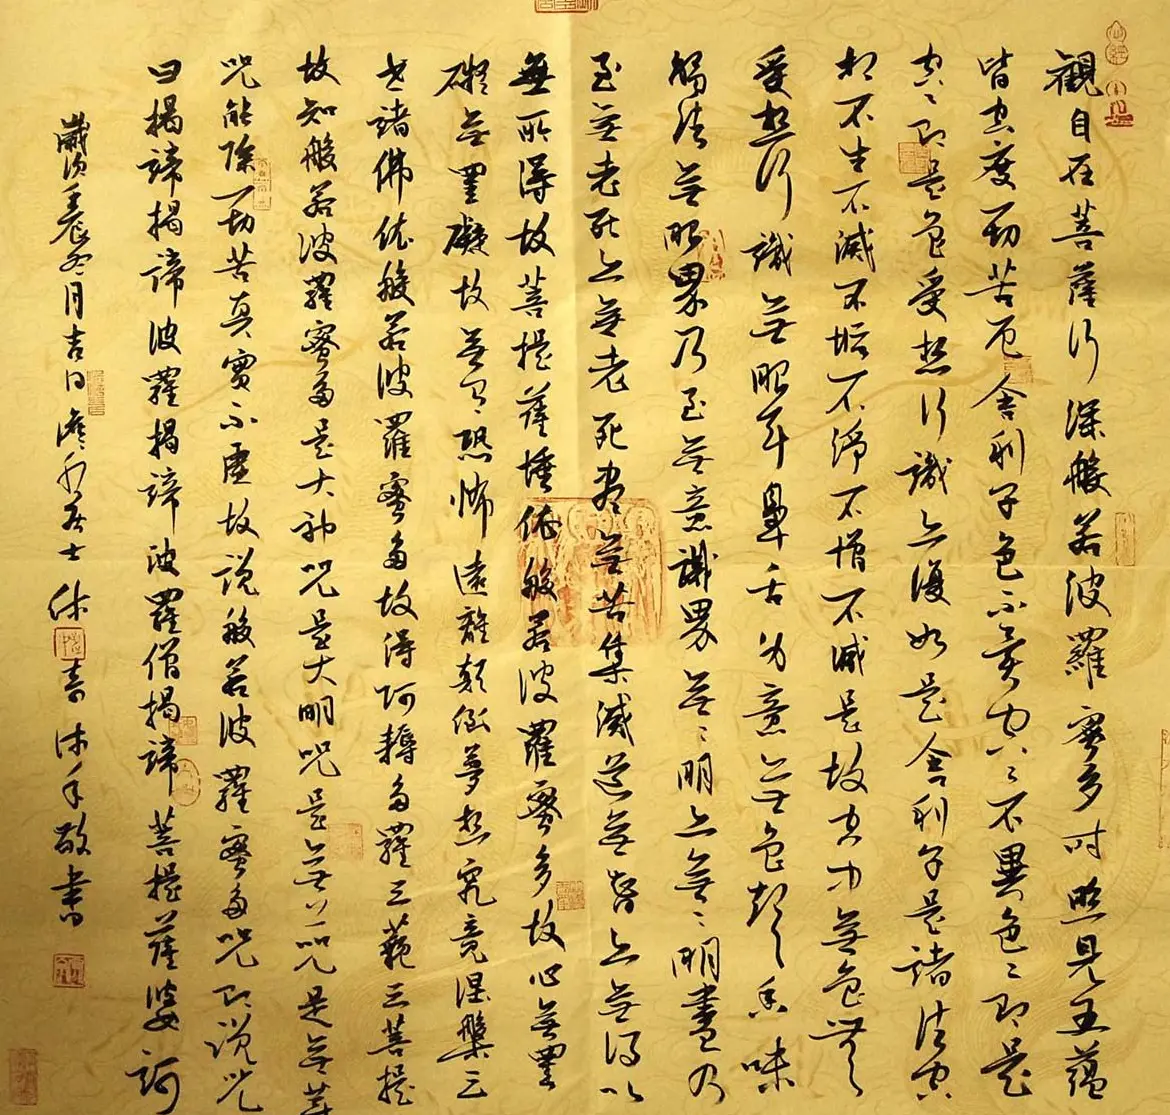 觀自在菩薩行深般若波羅蜜多時照見五蘊
皆空度一切苦厄舍利子色不異空〻不異色〻即是
空〻即是色受想行識亦復如是舍利子是諸法空
相不生不滅不垢不淨不增不減是故空中無色無
受想行識無眼耳鼻舌身意無色聲香味
觸法無眼界乃至無意識界無〻明亦無〻明盡乃
至無老死亦無老死盡無苦集滅道無智亦無得以
無所得故菩提薩埵依般若波羅蜜多故心無罣
礙無罣礙故無有恐怖遠離顛倒夢想究竟涅槃三
世諸佛依般若波羅蜜多故得阿耨多羅三藐三菩提
故知般若波羅蜜多是大神咒是大明咒是無上咒是無等
咒能除一切苦真實不虛故說般若波羅蜜多咒即說咒
曰揭諦揭諦波羅揭諦波羅僧揭諦菩提薩婆訶
歲次壬辰冬月吉日居士沐手敬書